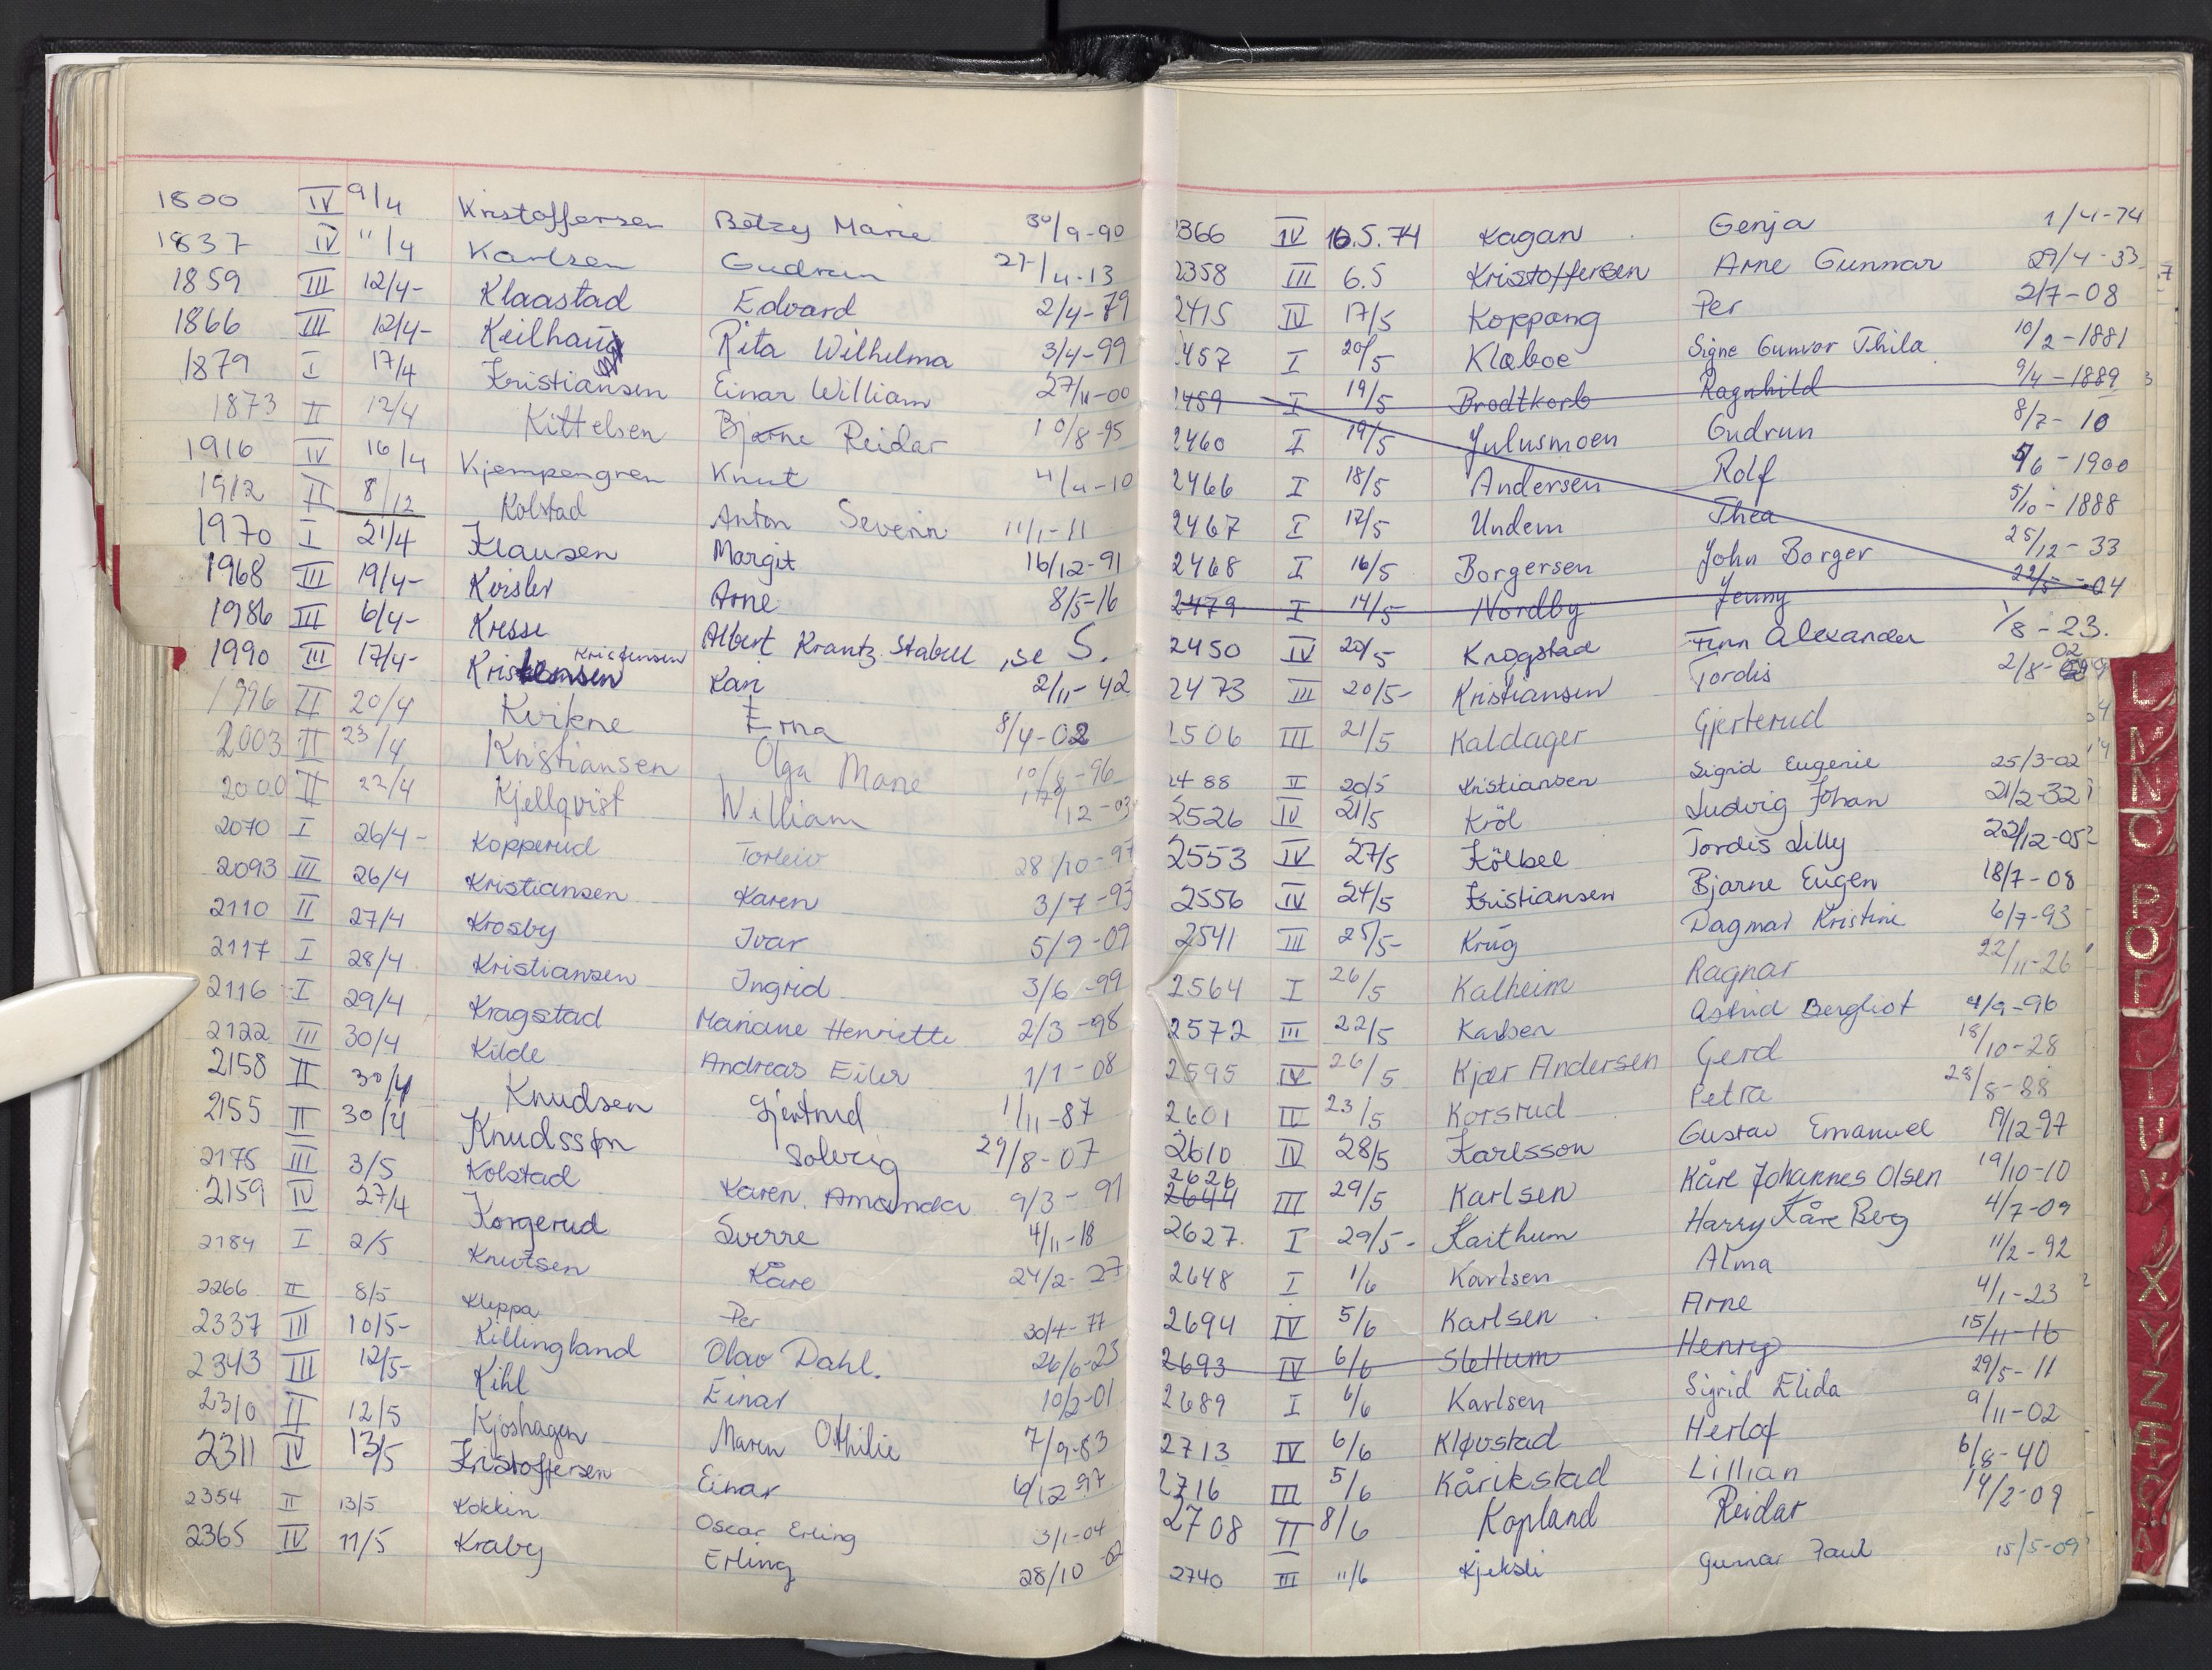 1800 IV 9/4 Kristoffersen Betzy Marie 30/9-90
1837 IV 11/4 Karlsen Gudrun 27/4-13
1859 III 12/4- Klaastad Edvard 2/4-79
1866 III 12/4- Keilhaug Rita Wilhelma 3/4-99
1879 I 17/4 Kristiansen Einar William 27/11-00
1873 II 12/4 Kittelsen Bjarne Reidar 10/8-95
1916 IV 16/4 Kjempengren Knut 4/4-10
1912 II 8/12 Kolstad Anton Severin 11/1-11
1970 I 21/4 Klausen Margit 16/12-91
1968 III 19/4- Kvisler Arne 8/5-16
1986 III 6/4- Kresse Albert Krantz Stabell, se S.
1990 III 17/4- Kristensen Kristensen Kari 2/11-42
1996 II 20/4 Kvikne Erna 8/4-02
2003 II 23/4 Kristiansen Olga Marie 10/8-96
2000 II 22/4 Kjellqvist William 17/12-03
2070 I 26/4- Kopperud Torleiv 28/10-97
2093 III 26/4 Kristiansen Karen 3/7-93
2110 II 27/4 Krosby Ivar 5/9-09
2117 I 28/4 Kristiansen Ingrid 3/6-99
2116 I 29/4 Kragstad Mariane Henriette 2/3-98
2122 III 30/4 Kilde Andreas Eiler 1/1-08
2158 II 30/4 Knudsen Gjertrud 1/11-87
2155 II 30/4 Knudssøn Solveig 29/8-07
2175 III 3/5 Kolstad Karen Amanda 9/3-91
2159 IV 27/4 Korgerud Sverre 4/11-18
2184 I 2/5 Knutsen Kåre 24/2-27
2266 II 8/5 Kleppa Per 30/4-77
2337 III 10/5- Killingland Olav Dahl. 26/6-23
2343 III 12/5- Kihl Einar 10/2-01
2310 II 12/5 Kjoshagen Maren Othilie 7/9-83
2311 IV 13/5 Kristoffersen Einar 6/12 97
2354 II 13/5 Kokkin Oscar Erling 3/1-04
2365 IV 11/5 Kraby Erling 28/10-02
366 IV 10.5.74 Kagan Genja 1/4-74
2358 III 6.5 Kristoffersen Arne Gunnar 29/4-33
2415 IV 17/5 Koppang Per 2/7-08
457 I 20/5 Klæboe Signe Gunvor Thila 10/2-1881
459 I 19/5 Brodtkorb Ragnhild 9/4-1889
2460 I 19/5 Julusmoen Gudrun 8/7-10
2466 I 18/5 Andersen Rolf 5/6-1900
2467 I 17/5 Undem Thea 5/10-1888
2468 I 16/5 Borgersen John Borger 25/12-33
2479 I 14/5 Nordby Jenny 22/5-04
2450 IV 20/5 Krogstad Finn Alexander 1/8-23.
2473 III 20/5- Kristiansen Tordis 2/8-02
2506 III 21/5 Kaldager Gjerterud
2488 II 20/5 Kristiansen Sigrid Eugenie 25/3-02
2526 IV 21/5 Kröl Ludvig Johan 21/2-32
2553 IV 27/5 Kölbel Tordis Lilly 22/12-05
2556 IV 24/5 Kristiansen Bjarne Eugen 18/7-08
2541 III 25/5- Krüg Dagmar Kristine 6/7-93
2564 I 26/5 Kalheim Ragnar 22/11-26
2572 III 22/5 Karlsen Astrid Bergliot 4/9-96
2595 IV 26/5 Kjær Andersen Gerd 18/10-28
2601 IV 23/5 Korsrud Petra 28/8-88
2610 IV 28/5 Karlsson Gustav Emanuel 19/12-97
2626 2644 III 29/5 Karlsen Kåre Johannes Olsen 19/10-10
2627. I 29/5- Kaithum Harry Kåre Berg 4/7-09
2648 I 1/6 Karlsen Alma 11/2-92
2694 IV 5/6 Karlsen Arne 4/1-23
2693 IV 6/6 Slettum Henry 15/11-16
2689 I 6/6 Karlsen Sigrid Elida 29/5-11
2713 IV 6/6 Kløvstad Herlof 9/11-02
2716 III 5/6 Kårikstad Lillian 6/8-40
2708 II 8/6 Kopland Reidar 14/2-09
2740 III 11/6 Kjeksli Gunnar Paul 15/5-09
L
M
N
O
P
Q
R
S
T
U
V
X
Y
Z
Æ
Ø